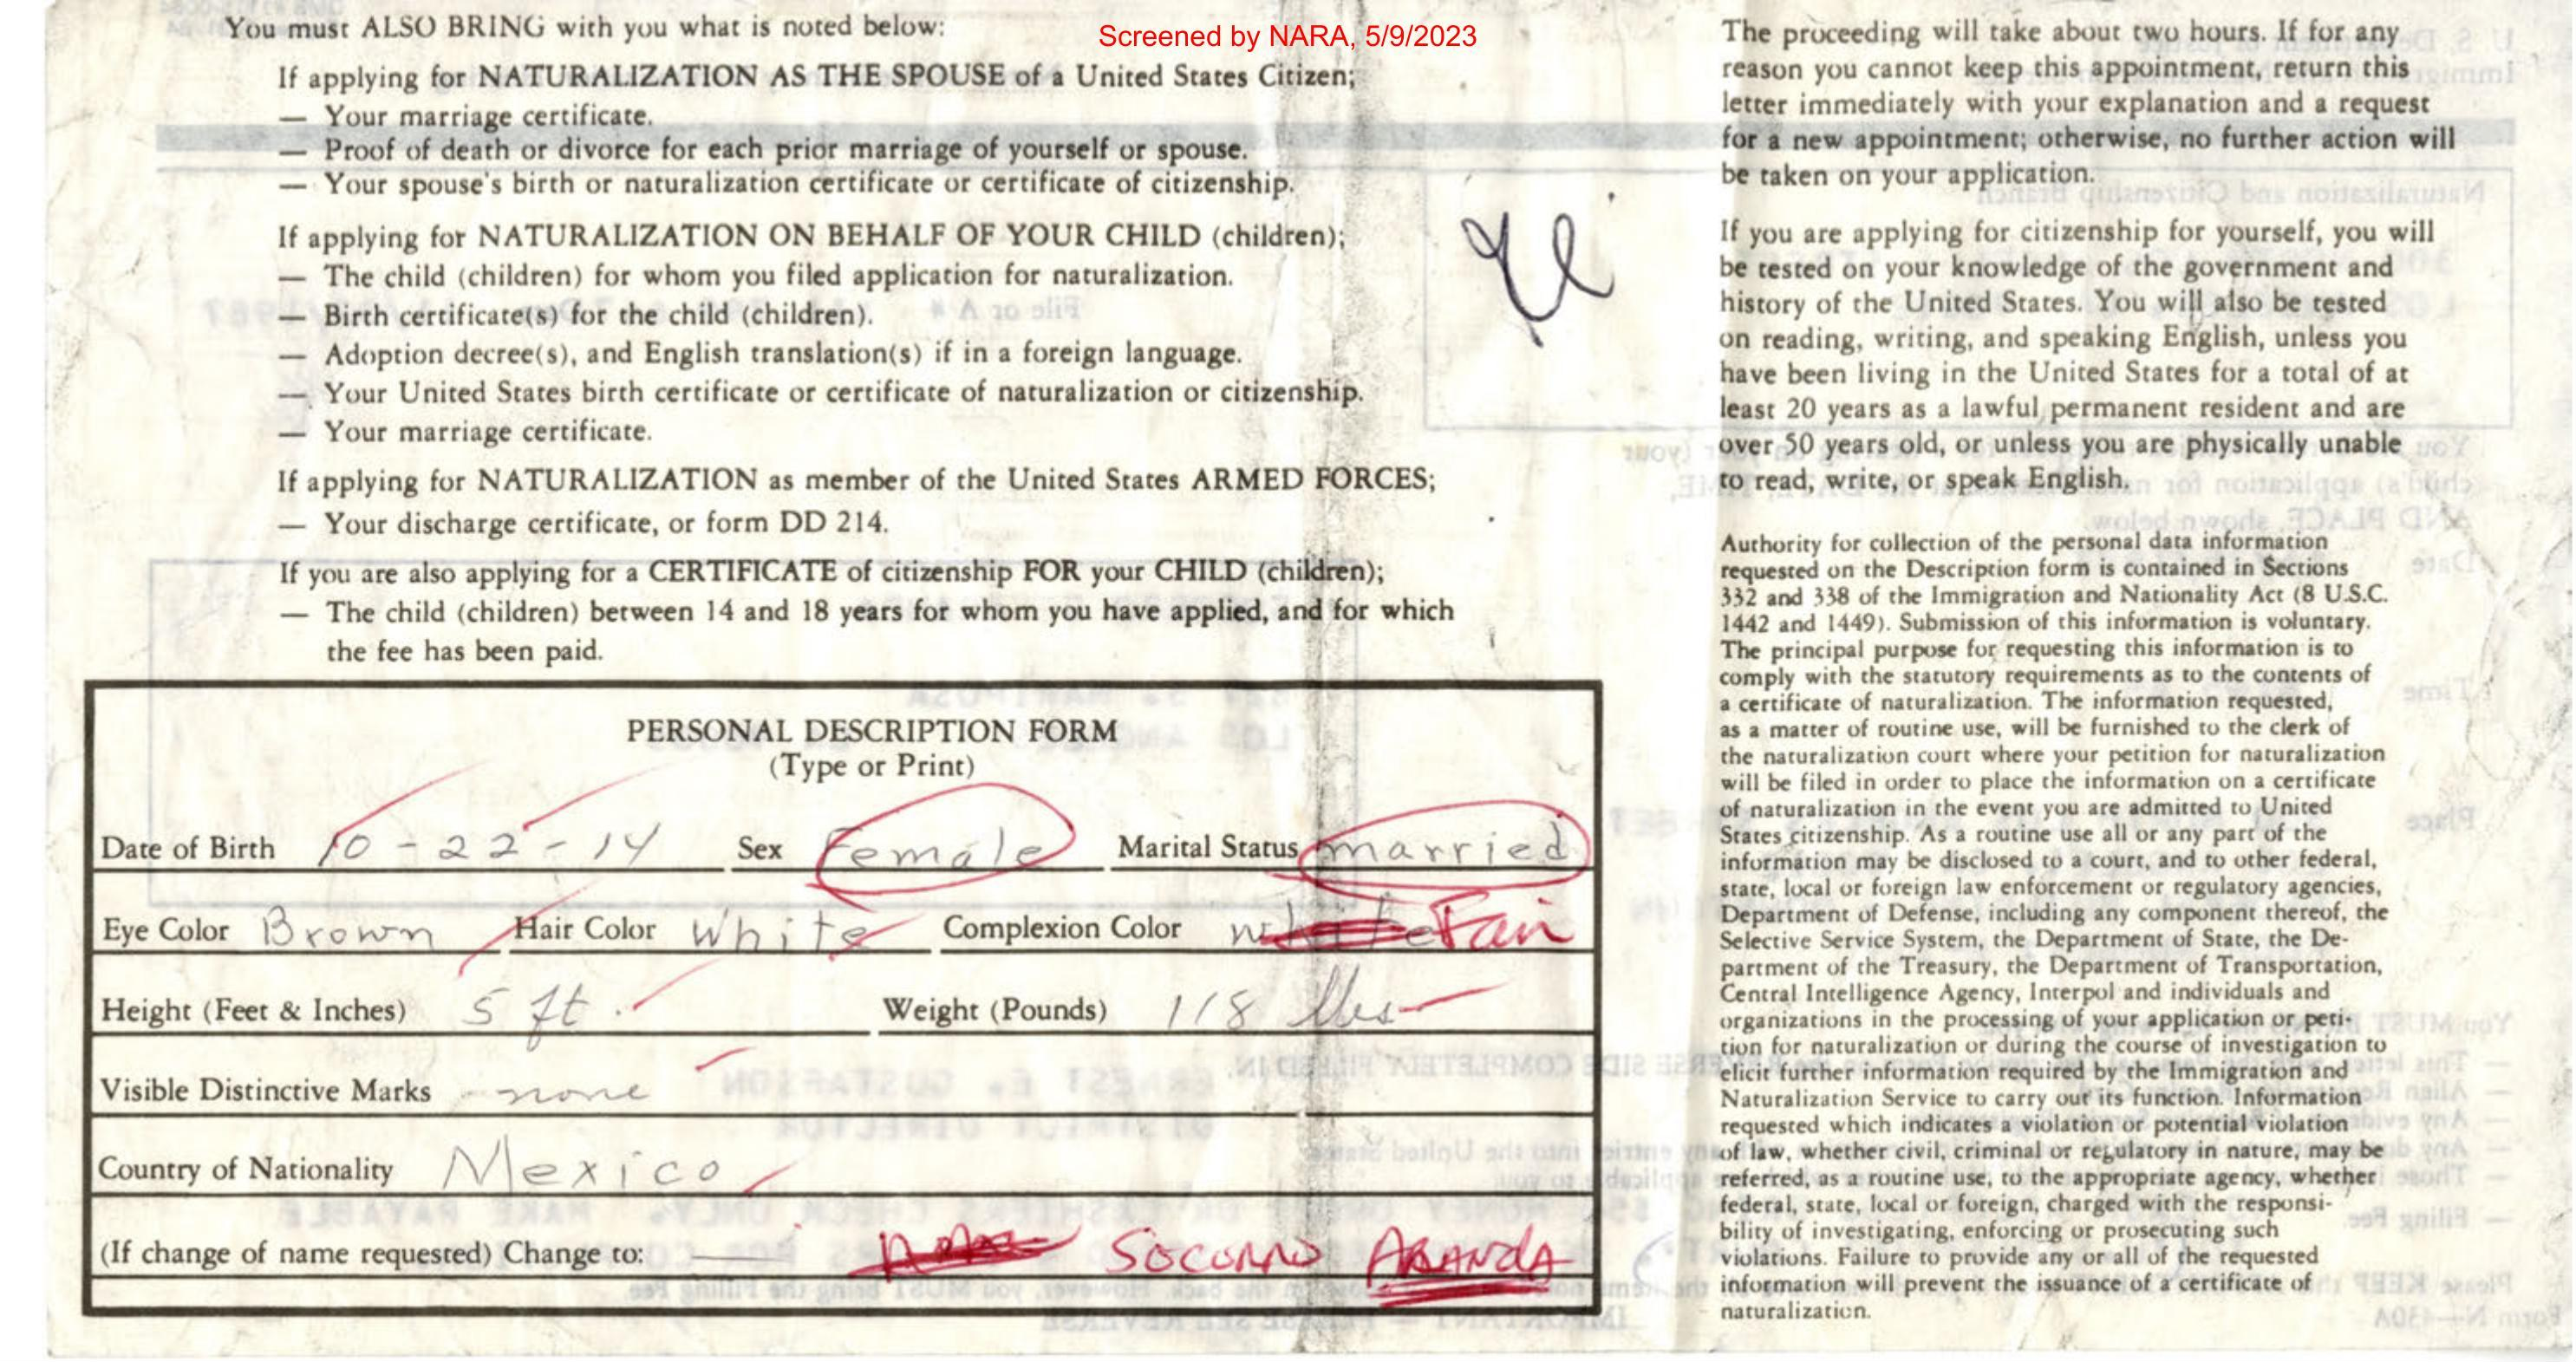 Screened by NARA, 5/9/2023
You must ALSO BRING with you what is noted below:
If applying for NATURALIZATION AS THE SPOUSE of a United States Citizen;
— Your marriage certificate.
— Proof of death or divorce for each prior marriage of yourself or spouse.
— Your spouse's birth or naturalization certificate or certificate of citizenship.
If applying for NATURALIZATION ON BEHALF OF YOUR CHILD (children);
— The child (children) for whom you filed application for naturalization.
— Birth certificate(s) for the child (children).
— Adoption decree(s), and English translation(s) if in a foreign language.
— Your United States birth certificate or certificate of naturalization or citizenship.
— Your marriage certificate.
If applying for NATURALIZATION as member of the United States ARMED FORCES;
— Your discharge certificate, or form DD 214.
If you are also applying for a CERTIFICATE of citizenship FOR your CHILD (children);
— The child (children) between 14 and 18 years for whom you have applied, and for which
the fee has been paid.
PERSONAL DESCRIPTION FORM
(Type or Print)
Date of Birth 10-22-14 Sex Female Marital Status married
Eye Color Brown Hair Color White Complexion Color white Fair
Height (Feet & Inches) 5 ft. Weight (Pounds) 118 lbs
Visible Distinctive Marks none
Country of Nationality Mexico
(If change of name requested) Change to: SOCORRO ARANDA
The proceeding will take about two hours. If for any
reason you cannot keep this appointment, return this
letter immediately with your explanation and a request
for a new appointment; otherwise, no further action will
be taken on your application.
If you are applying for citizenship for yourself, you will
be tested on your knowledge of the government and
history of the United States. You will also be tested
on reading, writing, and speaking English, unless you
have been living in the United States for a total of at
least 20 years as a lawful permanent resident and are
over 50 years old, or unless you are physically unable
to read, write, or speak English.
Authority for collection of the personal data information
requested on the Description form is contained in Sections
332 and 338 of the Immigration and Nationality Act (8 U.S.C.
1442 and 1449). Submission of this information is voluntary.
The principal purpose for requesting this information is to
comply with the statutory requirements as to the contents of
a certificate of naturalization. The information requested,
as a matter of routine use, will be furnished to the clerk of
the naturalization court where your petition for naturalization
will be filed in order to place the information on a certificate
of naturalization in the event you are admitted to United
States citizenship. As a routine use all or any part of the
information may be disclosed to a court, and to other federal,
state, local or foreign law enforcement or regulatory agencies,
Department of Defense, including any component thereof, the
Selective Service System, the Department of State, the De-
partment of the Treasury, the Department of Transportation,
Central Intelligence Agency, Interpol and individuals and
organizations in the processing of your application or peti-
tion for naturalization or during the course of investigation to
elicit further information required by the Immigration and
Naturalization Service to carry out its function. Information
requested which indicates a violation or potential violation
of law, whether civil, criminal or regulatory in nature, may be
referred, as a routine use, to the appropriate agency, whether
federal, state, local or foreign, charged with the responsi-
bility of investigating, enforcing or prosecuting such
violations. Failure to provide any or all of the requested
information will prevent the issuance of a certificate of
naturalization.